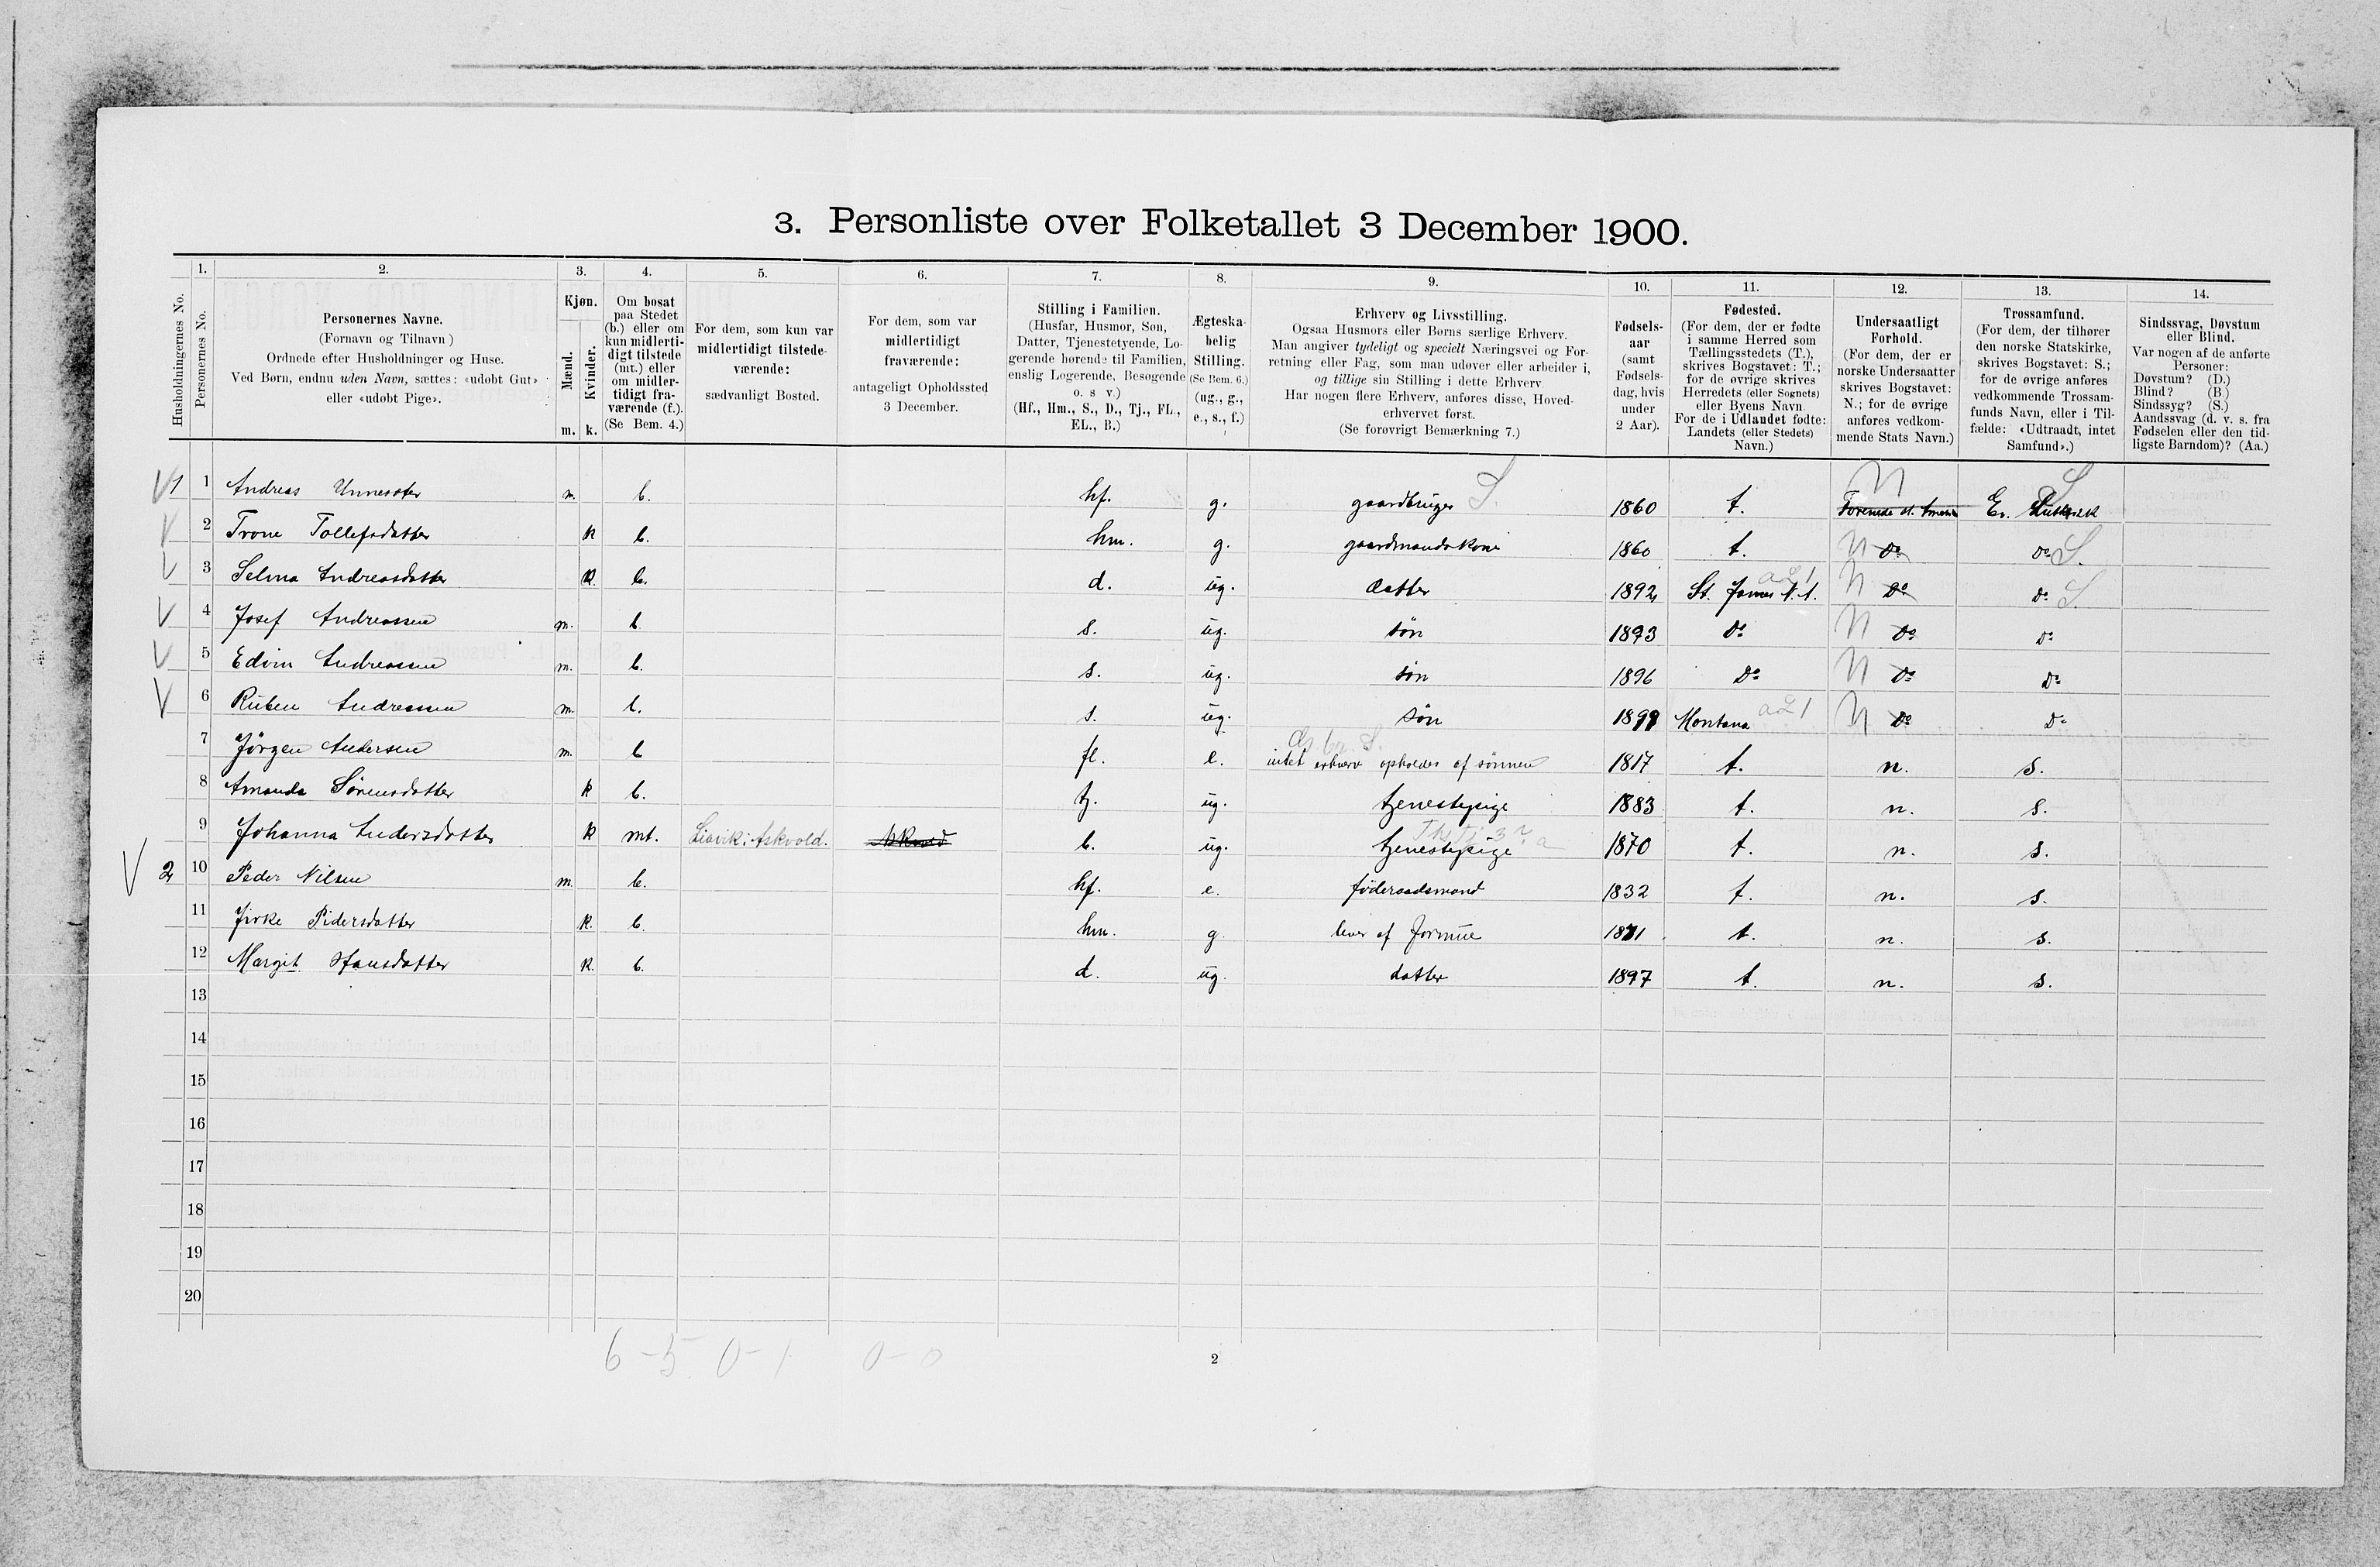 3. Personliste over Folketallet 3 December 1900.
1. 2. 3. 4. 5. 6. 7. 8. 9. 10. 11. 12. 13. 14.
Husholdningernes No.
Personernes No.
Personernes Navne.
(Fornavn og Tilnavn)
Ordnede efter Husholdninger og Huse.
Ved Børn, endnu uden Navn, sættes: «udøbt Gut»
eller «udøbt Pige».
Kjøn.
Mænd.
Kvinder.
m. k.
Om bosat
paa Stedet
(b.) eller om
kun midlerti-
digt tilstede
(mt.) eller
om midler-
tidigt fra-
værende (f.).
(Se Bem. 4.)
For dem, som kun var
midlertidigt tilstede-
værende:
sædvanligt Bosted.
For dem, som var
midlertidigt
fraværende:
antageligt Opholdssted
3 December.
Stilling i Familien.
(Husfar, Husmor, Søn,
Datter, Tjenestetyende, Lo-
gerende hørende til Familien,
enslig Logerende, Besøgende
o. s v.)
(Hf., Hm., S., D., Tj., FL.,
EL., B.)
Ægteska-
belig
Stilling.
(Se Bem. 6.)
(ug., g.,
e., s., f.)
Erhverv og Livsstilling.
Ogsaa Husmors eller Børns særlige Erhverv.
Man angiver tydeligt og specielt Næringsvei og For-
retning eller Fag, som man udøver eller arbeider i,
og tillige sin Stilling i dette Erhverv
Har nogen flere Erhverv, anføres disse, Hoved-
erhvervet først.
(Se forøvrigt Bemærkning 7.)
Fødsels-
aar
(samt
Fødsels-
dag, hvis
under
2 Aar).
Fødested.
(For dem, der er fødte
i samme Herred som
Tællingsstedets (T.),
skrives Bogstavet: T.;
for de øvrige skrives
Herredets (eller Sognets)
eller Byens Navn
For de i Udlandet fødte:
Landets (eller Stedets)
Navn.)
Undersaatligt
Forhold.
(For dem, der er
norske Undersaatter
skrives Bogstavet:
N.; for de øvrige
anføres vedkom-
mende Stats Navn.)
Trossamfund.
(For dem, der tilhører
den norske Statskirke,
skrives Bogstavet: S.;
for de øvrige anføres
vedkommende Trossam-
funds Navn, eller i Til-
fælde: «Udtraadt, intet
Samfund».)
Sindssvag, Døvstum
eller Blind.
Var nogen af de anførte
Personer:
Døvstum? (D.)
Blind? (B.)
Sindssyg? (S.)
Aandssvag (d. v. s. fra
Fødselen eller den tid-
ligste Barndom)? (Aa.)
1 1 Andreas m. b. hf. g. gaardbruger S. 1860 t. N Ev. S
2 Trone Tollefsdatter k b. hm. g. gaardmandskone 1860 t. N Do Do S.
3 Selma Andreasdatter k. b. d. ug. datter 1892 St. James N. A. a21 N Do Do S.
4 Josef Andreassen m. b s. ug. søn 1893 Do N Do Do
5 Edvin Andreassen m. b. s. ug. søn 1896 Do N Do Do
6 Ruben Andreassen m. b. s. ug. søn 1899 Montana a21 N Do Do
7 Jörgen Andersen m. b fl. e. intet erhverv opholdes af sönnen 1817 t. n. s.
8 Amanda Sörensdatter k b. tj. ug. tjenestepige 1883 t. n. s.
9 Johanna Andersdatter k mt. Leivik i Askvold. b. ug. tjenestepige 1870 t. n. s.
2 10 Peder Nilsen m. b. hf. e. föderaadsmand 1832 t. n. s.
11 Jirke Pidersdatter k. b. hm. g. lever af Formue 1871 t. n. s.
12 Margit Hansdatter k. b. d. ug. datter 1897 t. n. s.
13
14
15
16
17
18
19
20
6 - 5. 0 - 1 0 - 0
2